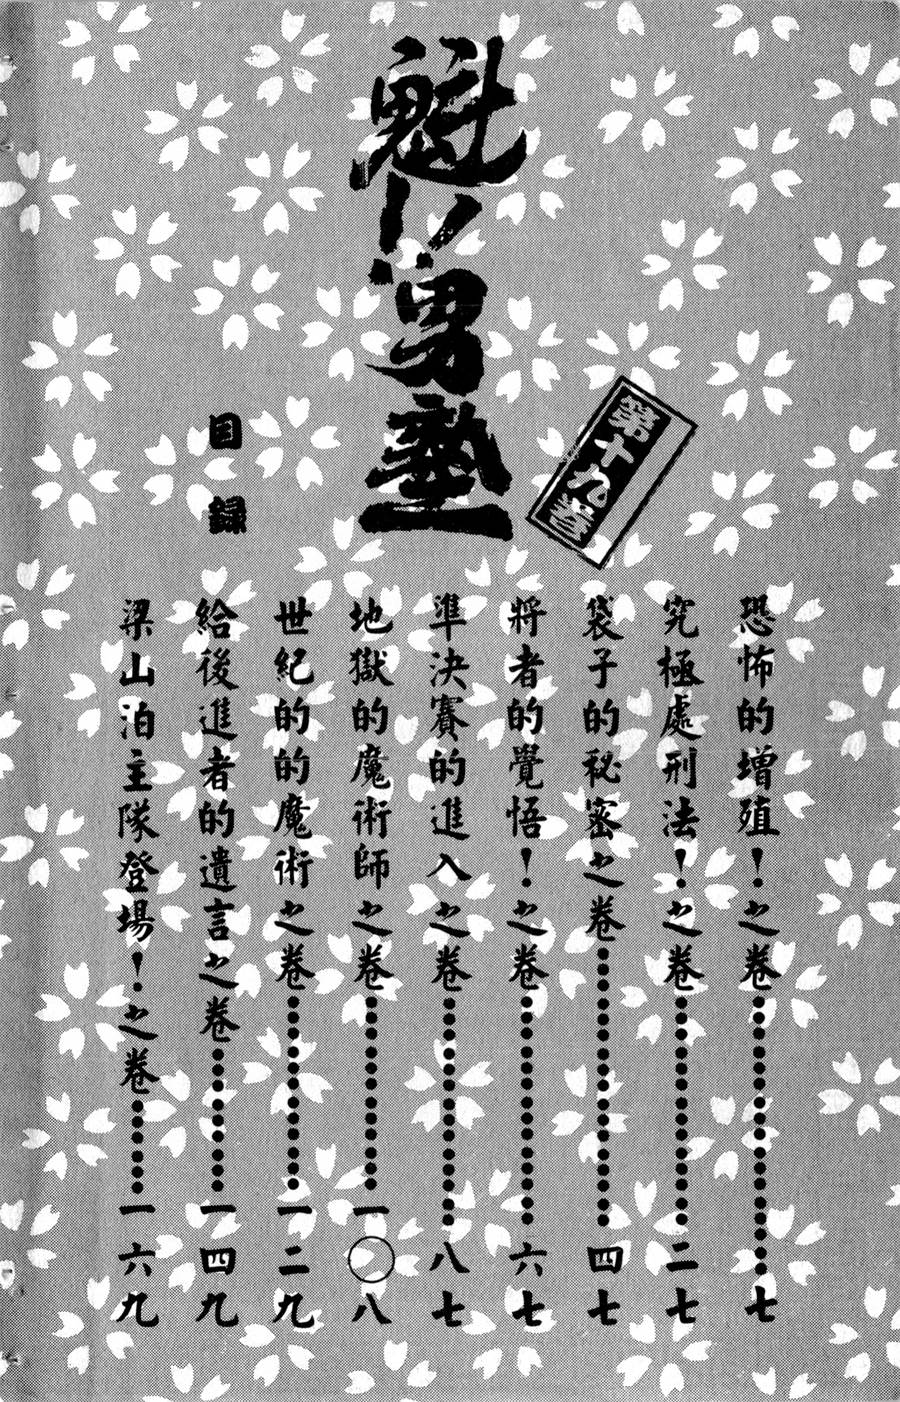 魁!!男塾
第十九卷
目録
恐怖的增殖!之卷……七
究極處刑法!之卷……二七
袋子的秘密之卷……四七
將者的覺悟!之卷……六七
準決賽的進入之卷……八七
地獄的魔術師之卷……一〇八
世紀的的魔術之卷……一二九
給後進者的遺言之卷……一四九
梁山泊主隊登場!之卷……一六九